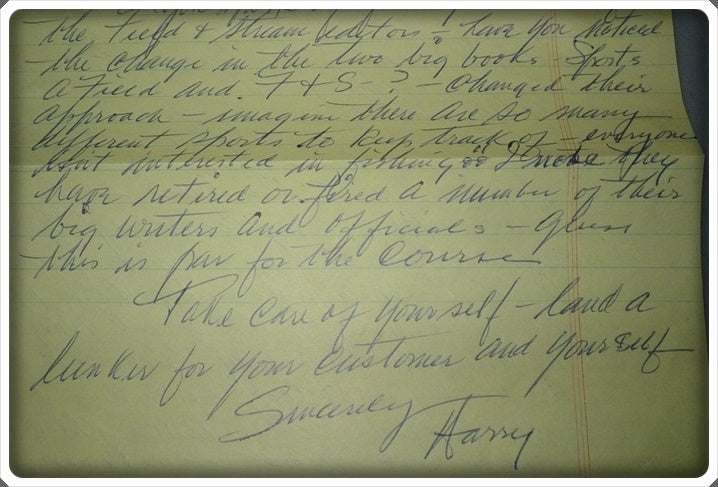 the Field & Stream editors - have you noticed
the change in the two big books - Sports
a Field and F & S - ? - changed their
approach - imagine there are so many
different sports to keep track of - everyone
isn't interested in fishing I note they
have retired or fired a number of their
big writers and officials - guess
this is par for the course
Take care of yourself - land a
lunker for your customer and yourself
Sincerely
Harry